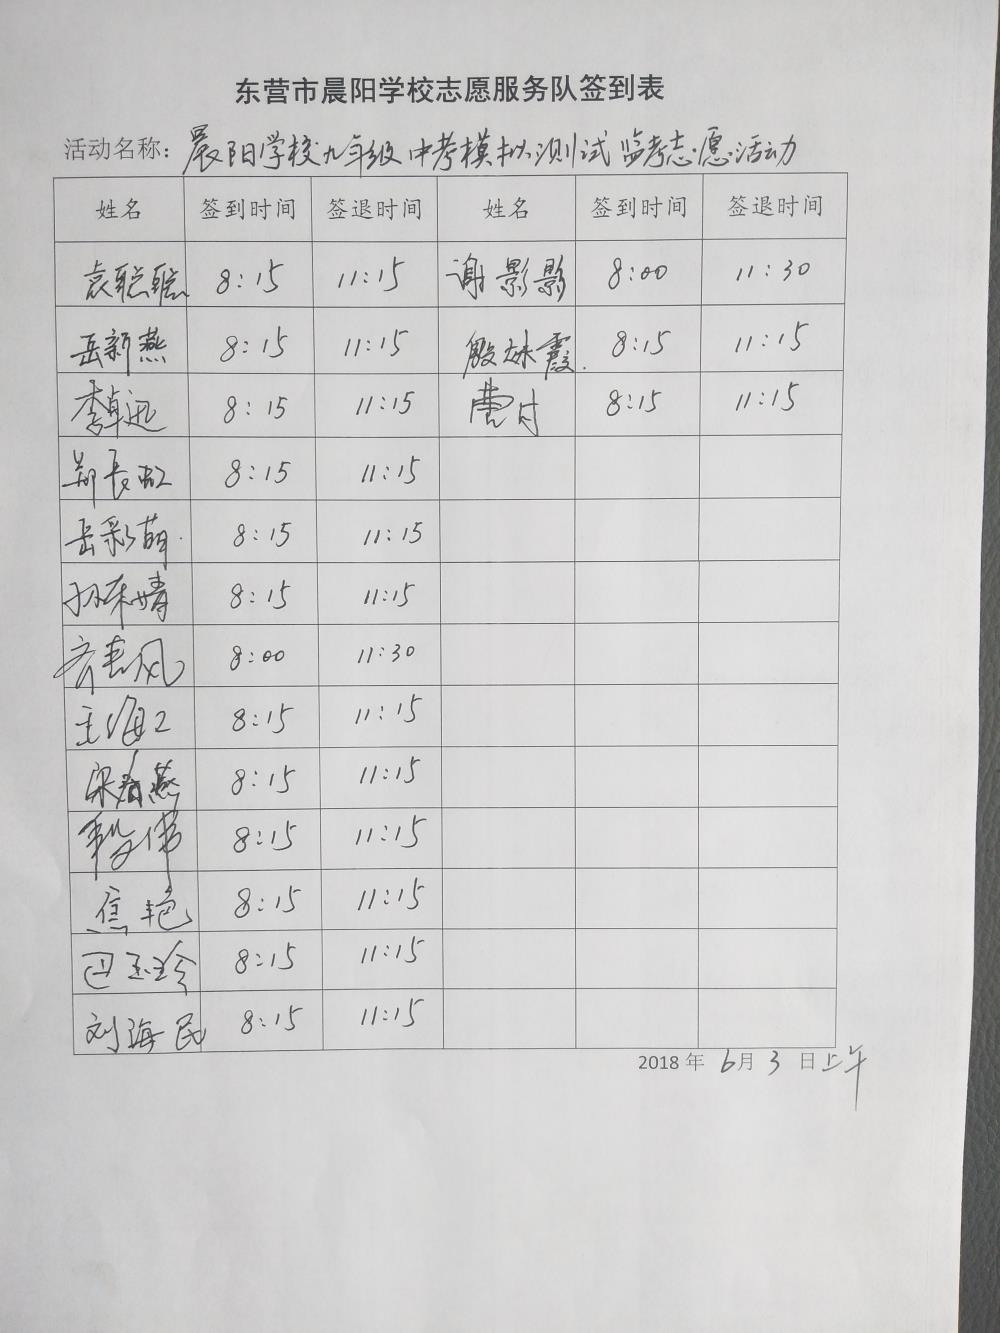 东营市晨阳学校志愿服务队签到表
活动名称：晨阳学校九年级中考模拟测试监考志愿活动
姓名 签到时间 签退时间 姓名 签到时间 签退时间
袁聪聪 8:15 11:15 谢影影 8:00 11:30
岳新燕 8:15 11:15 殷霞 8:15 11:15
李卓迅 8:15 11:15 8:15 11:15
郑长虹 8:15 11:15
岳彩萌 8:15 11:15
孙婧 8:15 11:15
齐春风 8:00 11:30
王海卫 8:15 11:15
宋春燕 8:15 11:15
伟 8:15 11:15
焦艳 8:15 11:15
巴玉玲 8:15 11:15
刘海民 8:15 11:15
2018年 6月 3 日上午